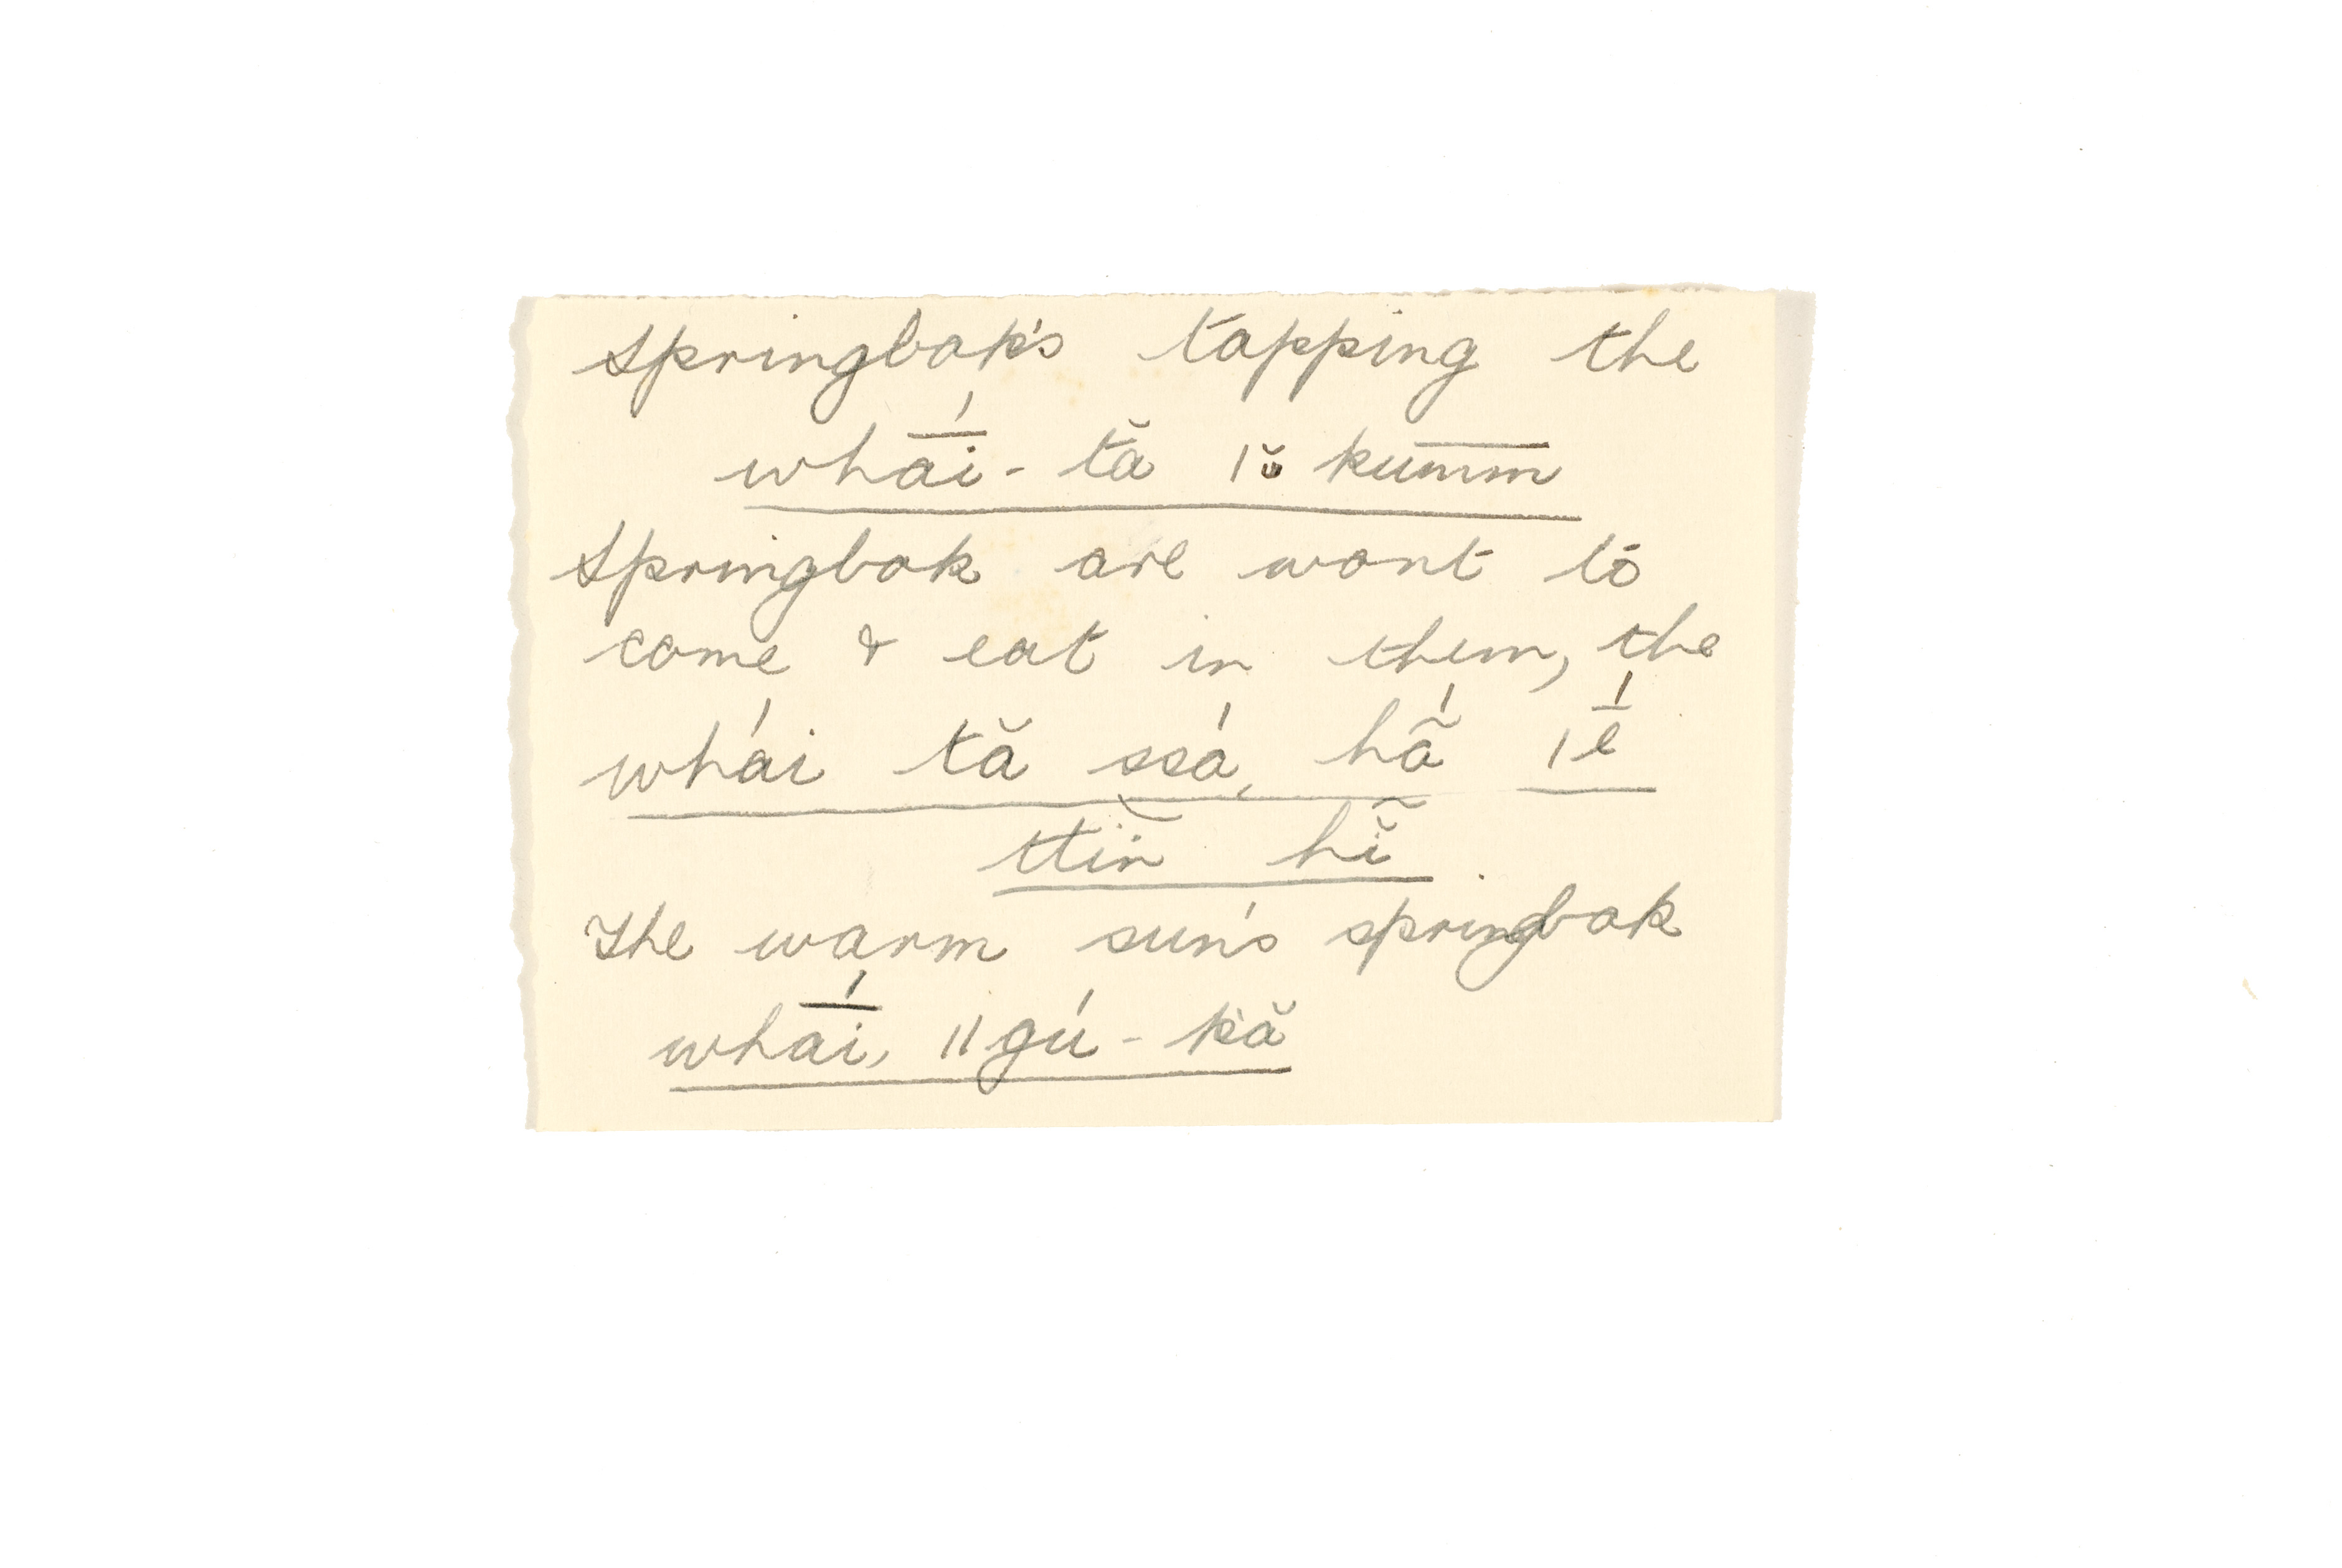 Springbok's tapping the
whā́i - tă ǀŭ kum̅m̅
Springbok are wont to
come & eat in them, the
whái tă ssá, hã́ ǀḗ
ttĭ̃n hĭ̃
The warm sun's springbok
whā́i, ǁgú - kă